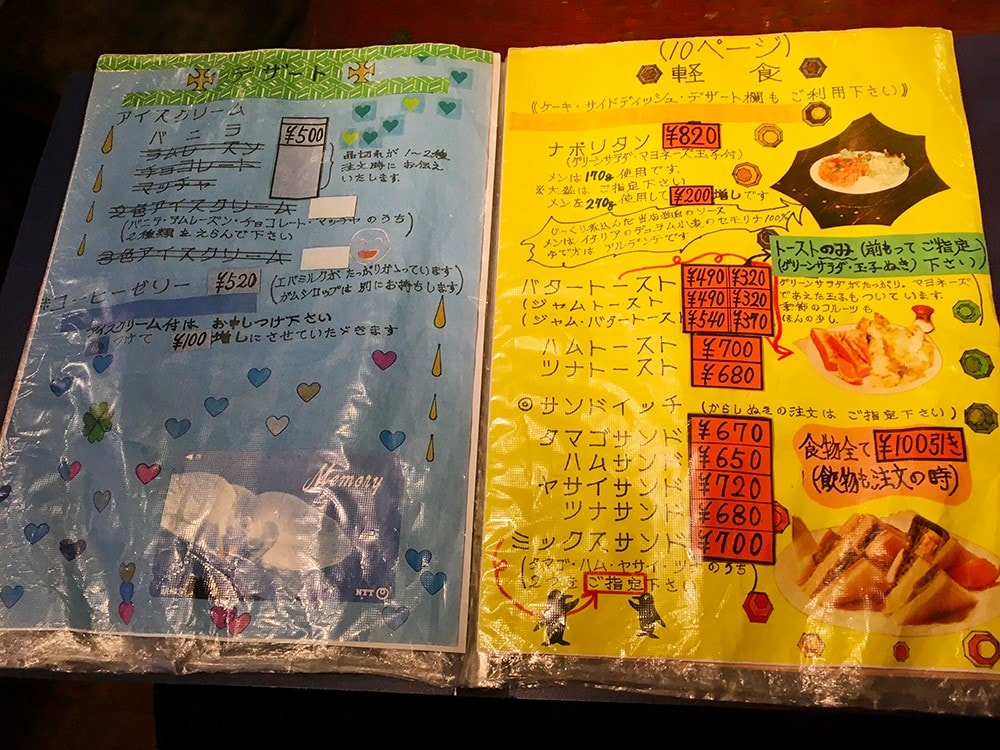 デザート
アイスクリーム
バニラ ¥500
ラムレーズン
チョコレート
マッチャ
品切れが1〜2種
注文時にお伝え
いたします
2色アイスクリーム
(バニラ・ラムレーズン・チョコレート・マッチャのうち)
2種類をえらんで下さい
3色アイスクリーム
コーヒーゼリー ¥520
(エバミルクがたっぷりかゝっています)
(ガムシロップは別にお持ちします)
アイスクリーム付は お申しつけ下さい
¥100増しにさせていたゞきます
Memory
NTT
(10ページ)
軽食
《ケーキ・サイドディッシュ・デザート欄も ご利用下さい》
ナポリタン ¥820
(グリーンサラダ・マヨネーズ玉子付)
メンは170g使用です
※大盛はご指定下さい
メンを270g使用して¥200増しです
じっくり煮込んだ当店独自のソース
メンはイタリアのデュラム小麦のセモリナ100%
ゆで方はアルデンテです
トーストのみ(前もってご指定
(グリーンサラダ・玉子ぬき) 下さい)
バタートースト ¥490 ¥320
(ジャムトースト ¥490 ¥320
(ジャム・バタートースト ¥540 ¥370
グリーンサラダがたっぷり。マヨネーズ
であえた玉子もついています。
季節のフルーツも
ほんの少し。
ハムトースト ¥700
ツナトースト ¥680
◎サンドイッチ (からしぬきの注文は ご指定下さい)
タマゴサンド ¥670
ハムサンド ¥650
ヤサイサンド ¥720
ツナサンド ¥680
ミックスサンド ¥700
(タマゴ・ハム・ヤサイ・ツナのうち)
2つをご指定下さい
食物全て¥100引き
(飲物も注文の時)